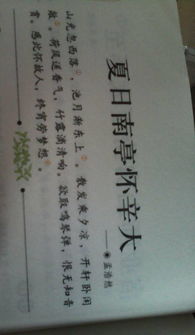 夏日南亭怀辛大
——◉孟浩然
山光忽西落，池月渐东上。散发乘夕凉，开轩卧闲
敞。荷风送香气，竹露滴清响。欲取鸣琴弹，恨无知音
赏。感此怀故人，终宵劳梦想。